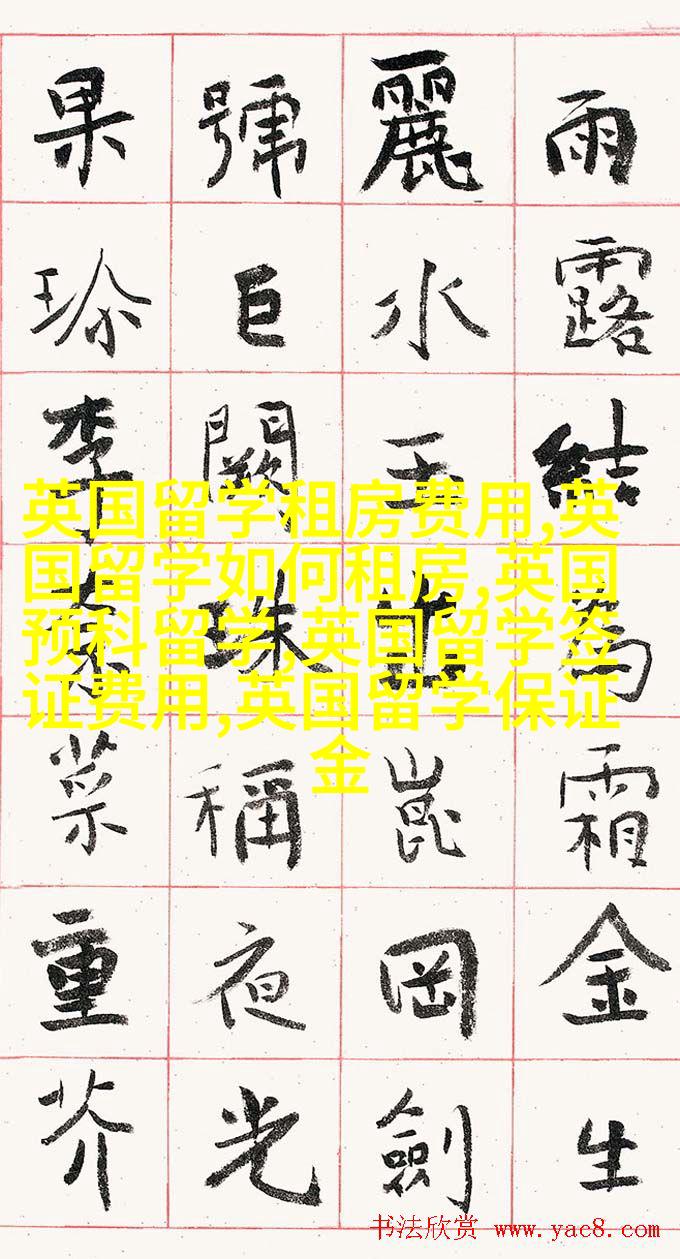 雨露結為霜金生
麗水玉出崑岡劍
號巨闕珠稱夜光
果珍李柰菜重芥
英国留学租房费用,英
国留学如何租房,英国
预科留学,英国留学签
证费用,英国留学保证
金
书法欣赏 www.yac8.com